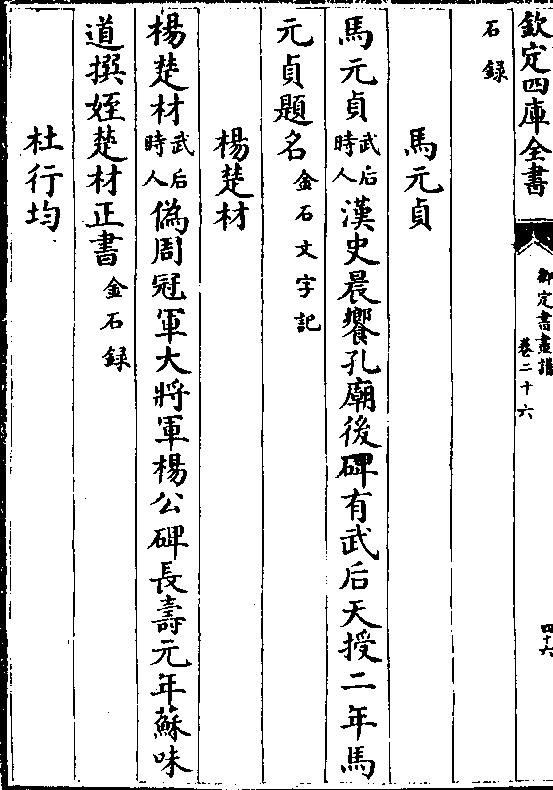 欽定四庫全書
御定書畫譜
卷二十六
四十六
石錄
馬元貞
馬元貞武后時人漢史晨饗孔廟後碑有武后天授二年馬
元貞題名金石文字記
楊楚材
楊楚材武后時人偽周冠軍大將軍楊公碑長壽元年蘇味
道撰姪楚材正書金石録
杜行均